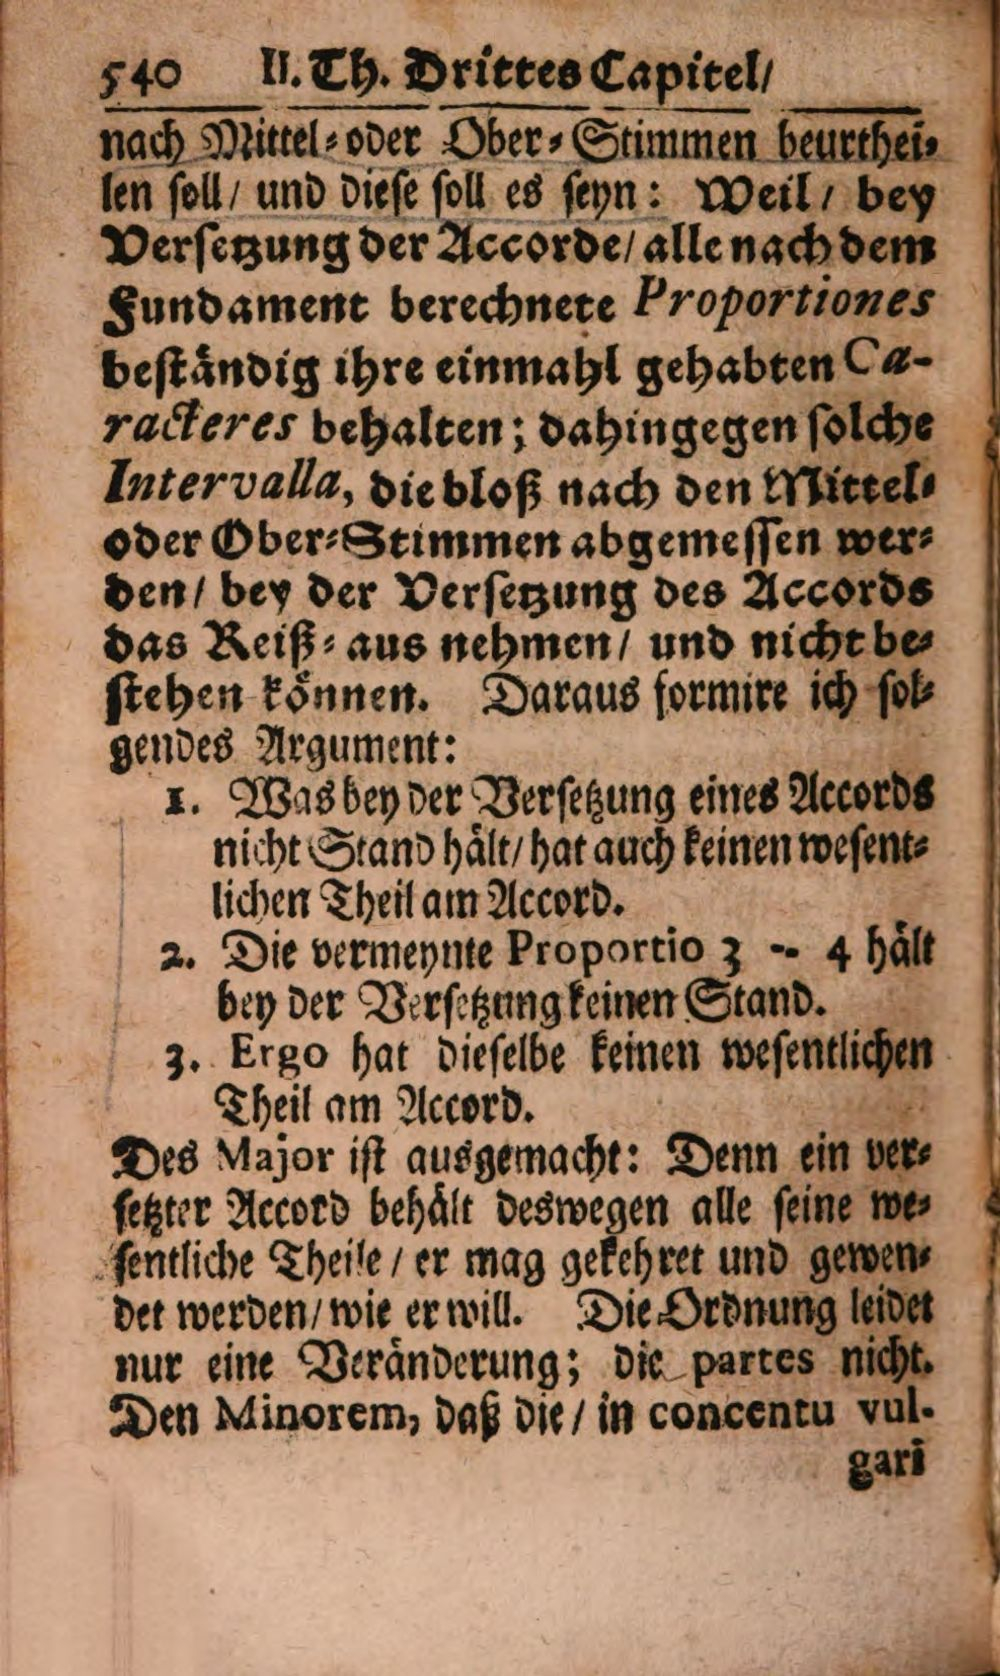 540 II. Th. Drittes Capitel/
nach Mittel- oder Ober-Stimmen beurthei-
len soll/ und diese soll es seyn: Weil/ bey
Versetzung der Accorde/ alle nach dem
Fundament berechnete Proportiones
beständig ihre einmahl gehabten Ca-
racteres behalten; dahingegen solche
Intervalla, die bloß nach den Mittel-
oder Ober-Stimmen abgemessen wer-
den/ bey der Versetzung des Accords
das Reiß-aus nehmen/ und nicht be-
stehen können. Daraus formire ich fol-
gendes Argument:
1. Was bey der Versetzung eines Accords
nicht Stand hält/ hat auch keinen wesent-
lichen Theil am Accord.
2. Die vermeynte Proportio 3 -- 4 hält
bey der Versetzung keinen Stand.
3. Ergo hat dieselbe keinen wesentlichen
Theil am Accord.
Des Major ist ausgemacht: Denn ein ver-
setzter Accord behält deswegen alle seine we-
sentliche Theile/ er mag gekehret und gewen-
det werden/ wie er will. Die Ordnung leidet
nur eine Veränderung; die partes nicht.
Den Minorem, daß die/ in concentu vul-
gari